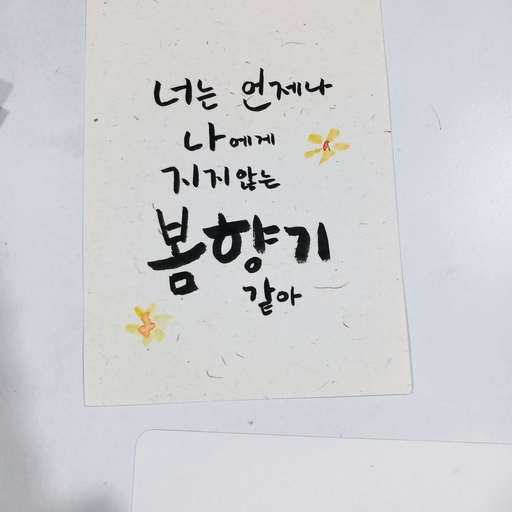 너는 언제나
나에게
지지않는
봄향기
같아